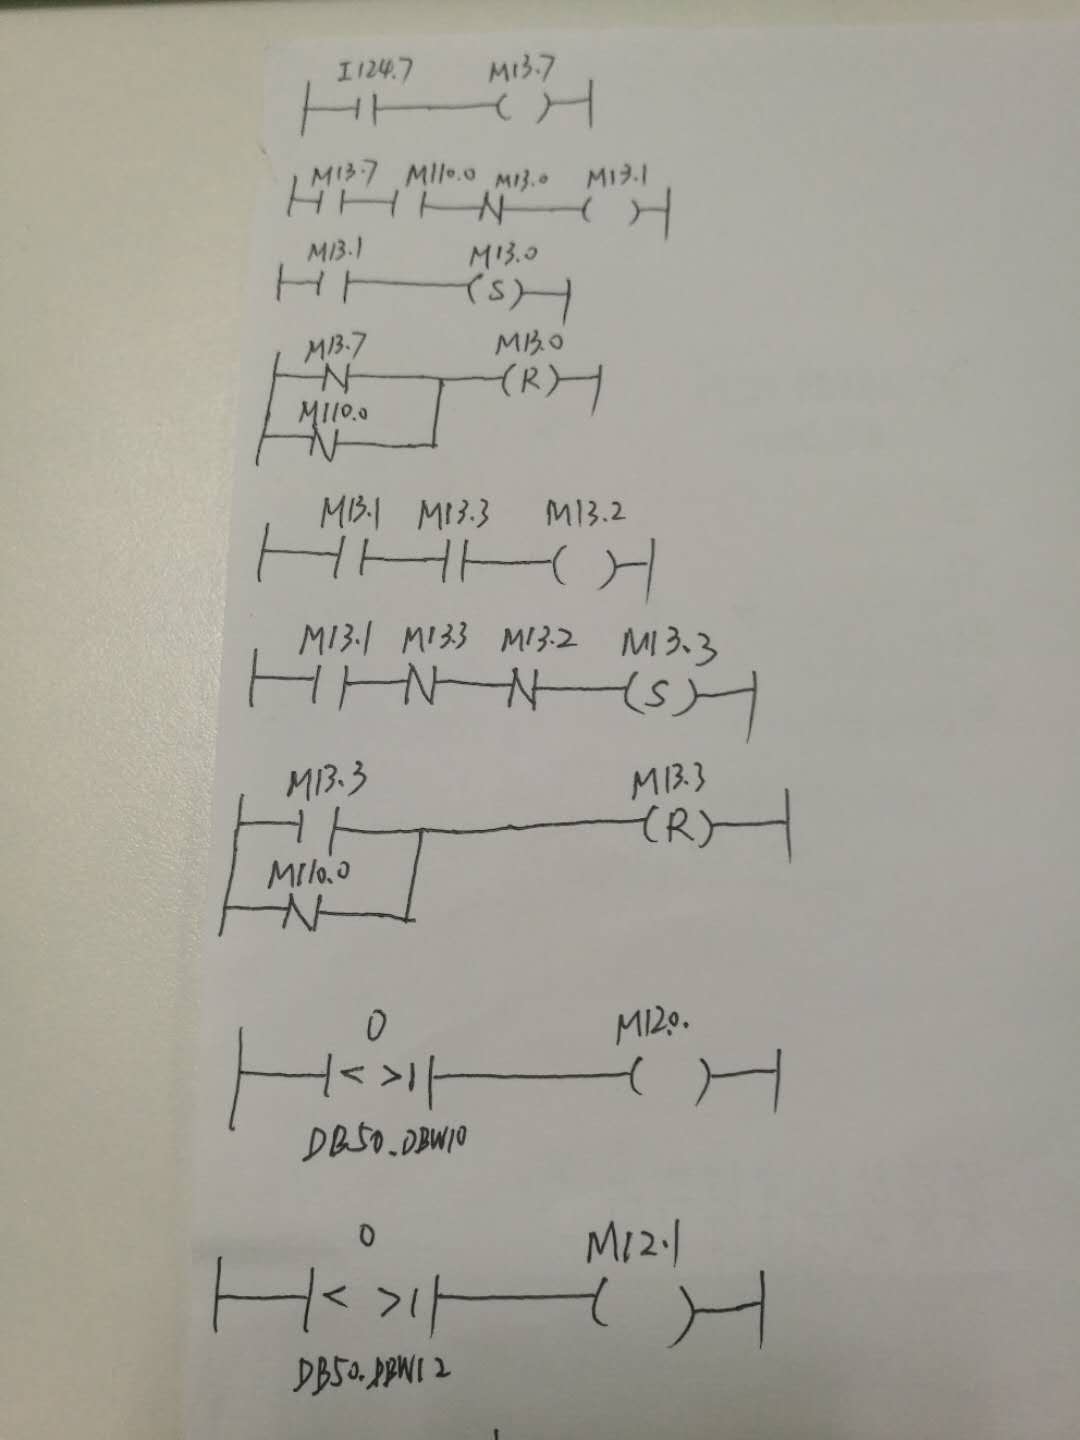 I124.7 M13.7
M13.7 M110.0 M13.0 M13.1
M13.1 M13.0
S
M13.7 M13.0
R
M110.0
M13.1 M13.3 M13.2
M13.1 M13.3 M13.2 M13.3
S
M13.3 M13.3
R
M110.0
0 M120.
< >1
DB50.DBW10
0 M12.1
< >1
DB50.DBW12